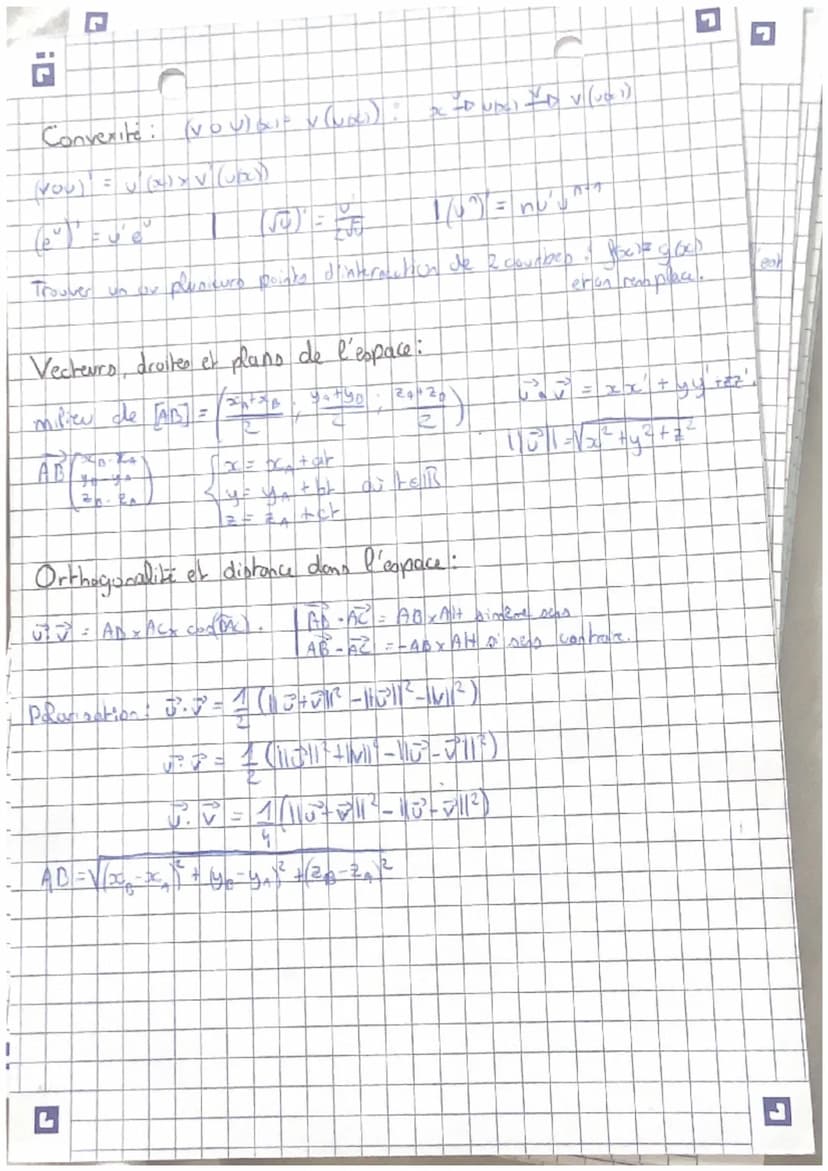 Convexité : (v o u)(x) = v(u(x)) : x →ᵘ u(x) →ᵛ v(u(x))
(vou)' = u'(x) × v'(u(x))
(eᵘ)' = u'eᵘ | (√u)' = u'/2√u | (uⁿ)' = nu'uⁿ⁻¹
Trouver un ou plusieurs points d'intersection de 2 courbes : f(x) = g(x)
et on remplace.
Vecteurs, droites et plans de l'espace :
milieu de [AB] = (xA+xB/2 ; yA+yB/2 ; zA+zB/2) u⃗.v⃗ = xx' + yy' + zz'.
||u⃗|| = √x² + y² + z²
AB⃗ (xB-xA
yB-yA
zB-zA)
{ x = xA + at
y = yA + bt où t∈ℝ
z = zA + ct
Orthogonalité et distance dans l'espace :
u⃗.v⃗ = AB × AC × cos(BAC). | AB⃗ . AC⃗ = AB × AH si même sens
AB⃗ . AC⃗ = -AB × AH si sens contraire.
Polarisation : u⃗.v⃗ = 1/2 (||u⃗+v⃗||² - ||u⃗||² - ||v||²)
u⃗.v⃗ = 1/2 (||u⃗||² + ||v||² - ||u⃗-v⃗||²)
u⃗.v⃗ = 1/4 (||u⃗+v⃗||² - ||u⃗-v⃗||²)
AB = √(xB-xA)² + (yB-yA)² + (zB-zA)²